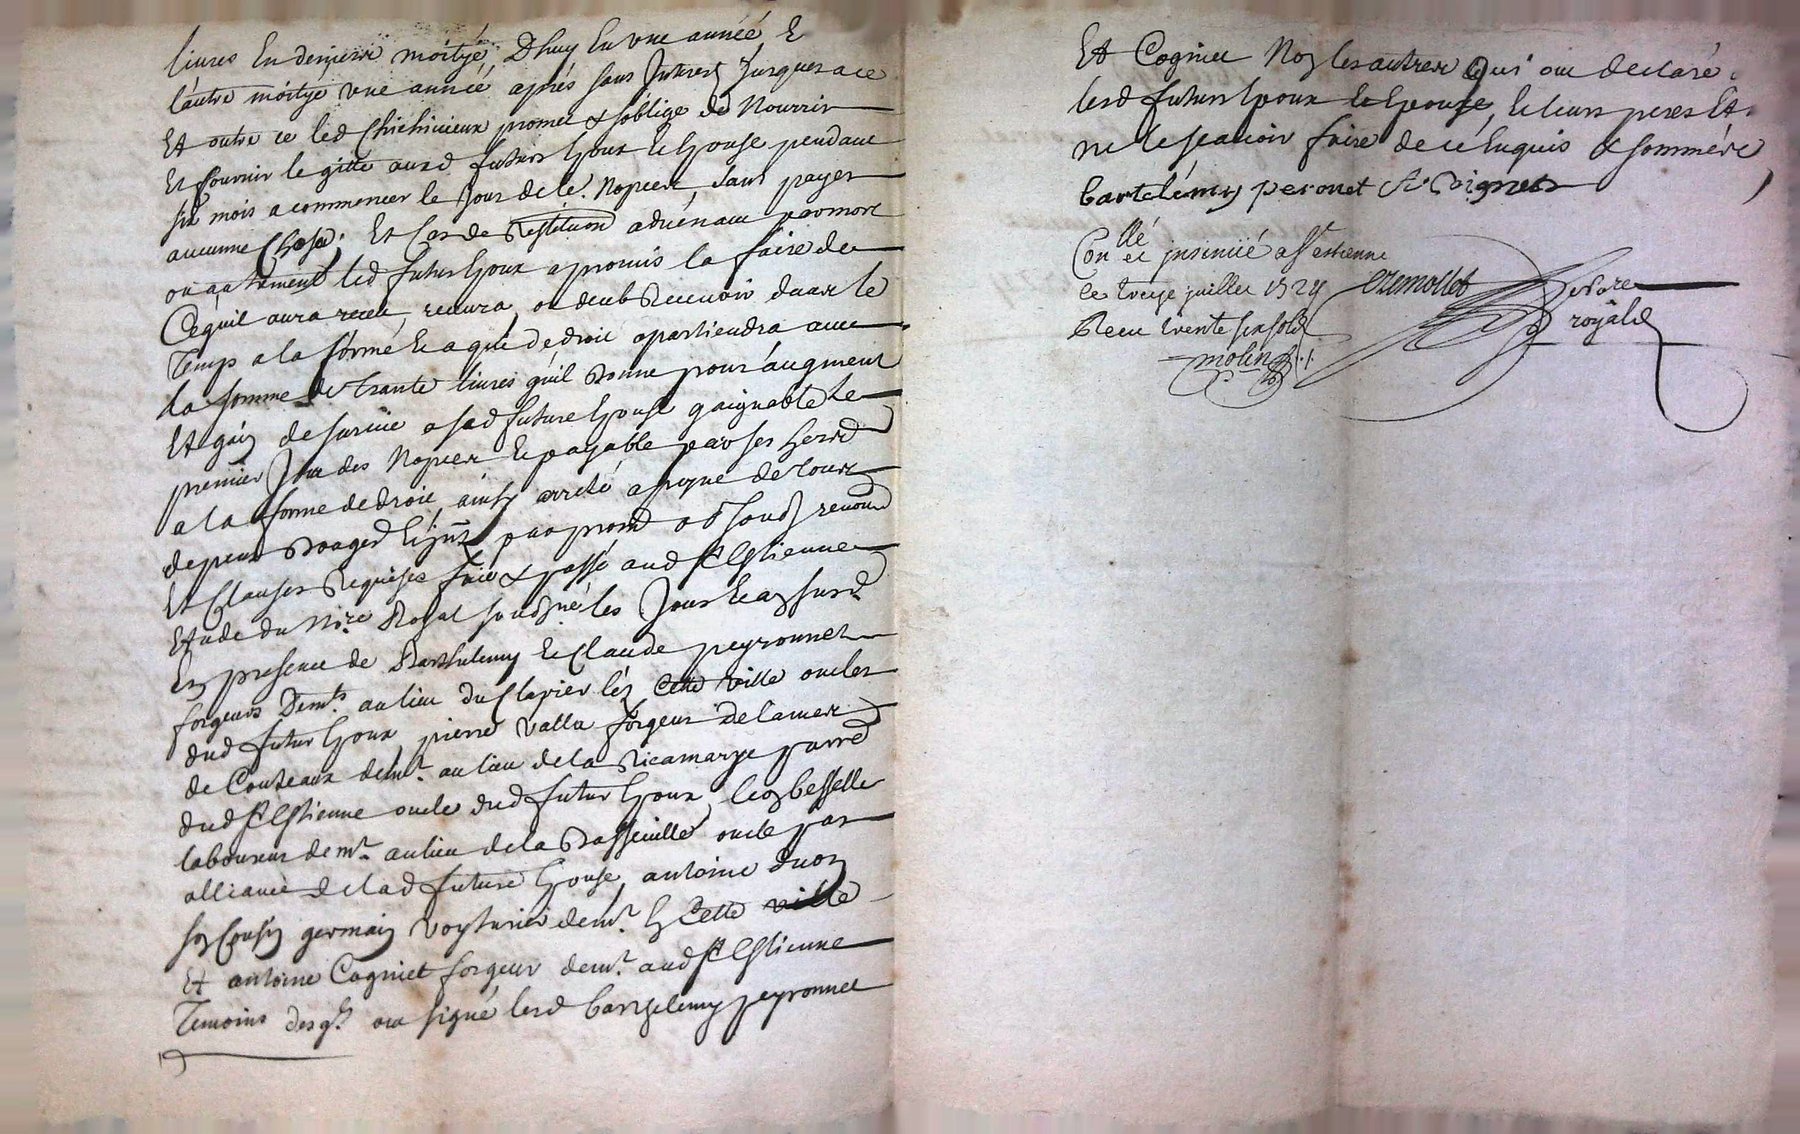 livres la derniere moityé, Dhuy En vne année &
l'autre moitye vne année après sans Jnterest Jusques a ce
Et outre ce led Chichivieux promet & s'oblige de Nourrir
Et fournir le gitte ausd futurs Epoux & Epouse pendant
six mois a commencer le Jour de le. Nopces, sans payer
aucunne Chose, Et Cas de Restituon aduénant par mort
ou autrement led futur Epoux a promis la faire de
Céquil aura receu, recevra, ou deub Receuoir dans le
Temps a la forme Et a qui de droit apartiendra auec
la somme de trante liures qu'il Donne pour augment
Et gain de suruie a sad future Epouse gaignable le
premier Jour des Nopces & payable par ses heritr
a la forme de droit, ainsy arreté a peyne de tous
depens Domages Et par prom ob soub renon
Et Clauses Requises fait & passé aud St Estienne
Etude du Nore Royal soubsigné les Jour & an susd
En presence de Barthelemy & Claude peyronnet
forgeurs Demts au lieu du Clapier léz Cette Ville oncles
dud futur Epoux, pierre Valla forgeur de lames
de Couteaux demt au lieu de la Ricamarye parre
dud St Estienne oncle dud futur Epoux, Leon besselle
laboureur demt au lieu de la Basseville oncle par
alliance de lad future Epouse, antoine duon
son Cousin germain Voyturier demt En Cette ville
Et antoine Cogniet forgeur demt aud St Estienne
Temoins desqls ont signé lesd barthelemy peyronnet
Et Cogniet Non les autres Qui ont declaré
lesd futurs Epoux & Epouse, & leurs peres Et
ne le scauoir faire de ce Enquis & sommés
bartélémy peronet A Cognet
Conllé et jnsinüé a St estienne
le treize juillet 1724
Receu trente six sols
molin
Cremollet
notaire
royal